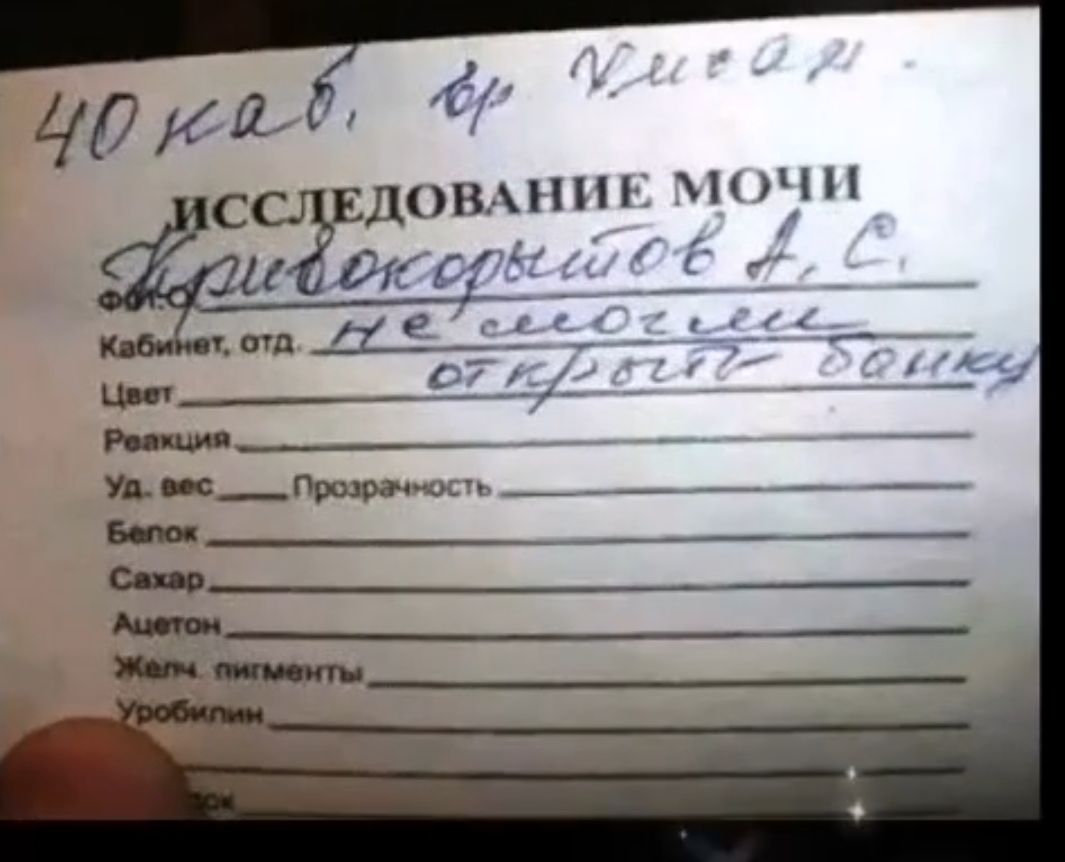 40 каб. вр
ИССЛЕДОВАНИЕ МОЧИ
Кривокорытов А. С.
Кабинет, отд. не смогли
открыть банку
Цвет
Реакция
Уд. вес Прозрачность
Белок
Сахар
Ацетон
Желч. пигменты
Уробилин